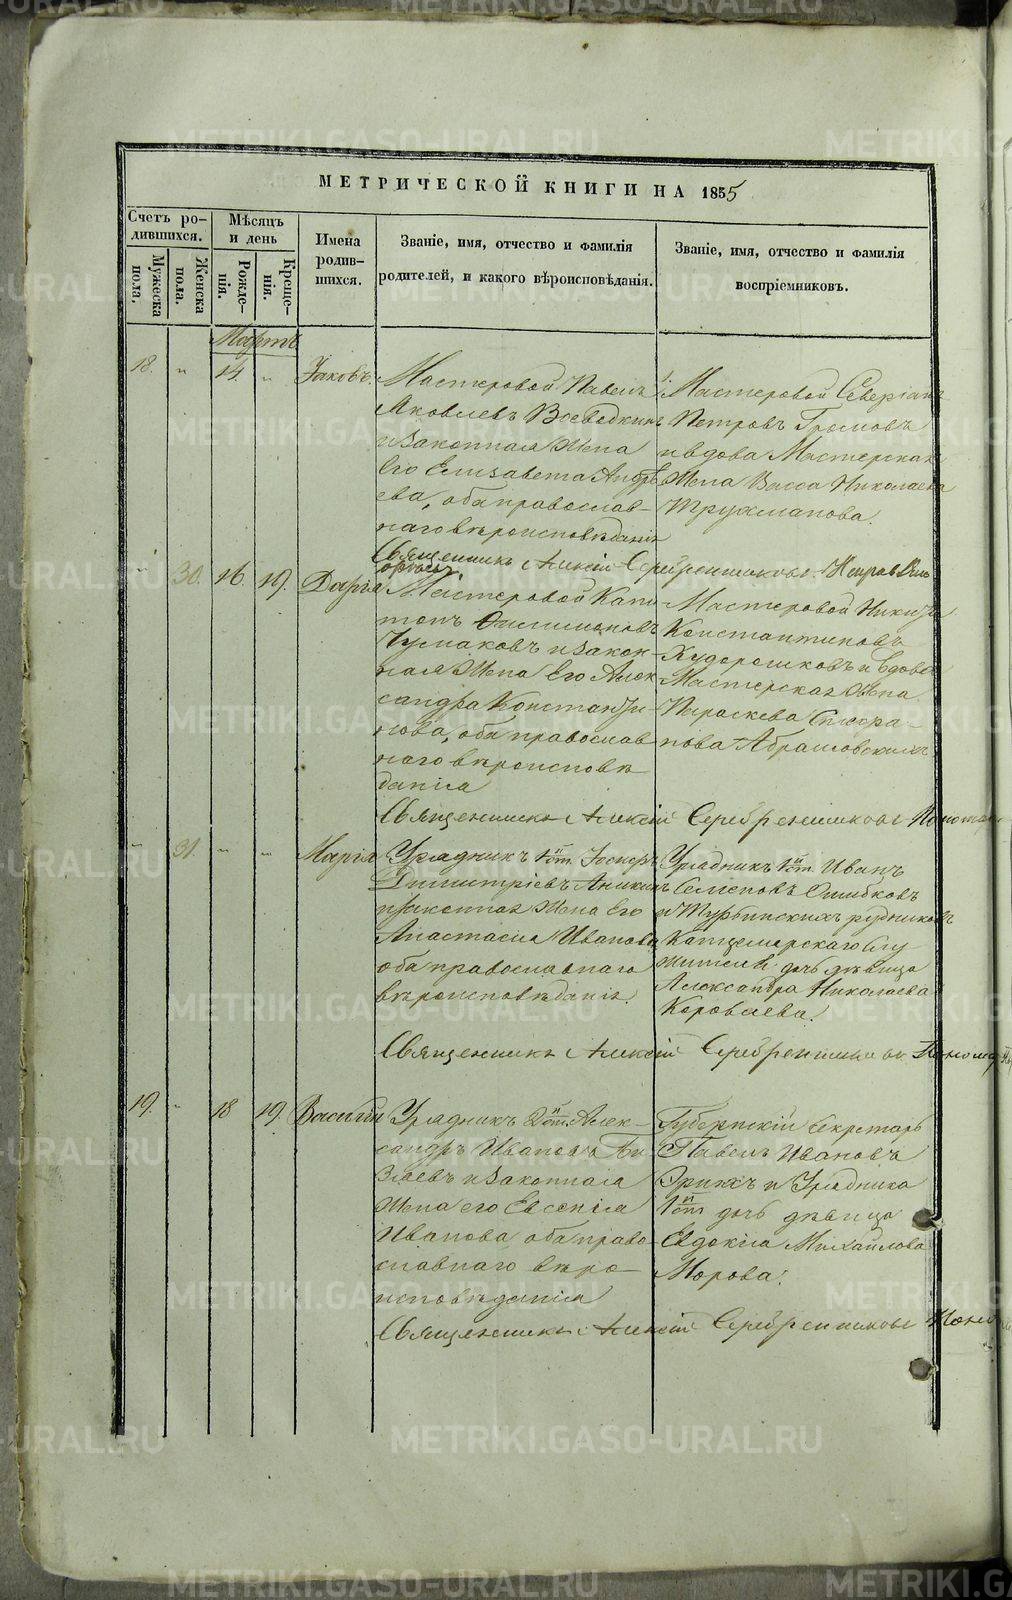 МЕТРИЧЕСКОЙ КНИГИ НА 1855
Счетъ ро-
дившихся.
Мѣсяцъ
и день
Имена
родив-
шихся.
Званіе, имя, отчество и фамилія
родителей, и какого вѣроисповѣданія.
Званіе, имя, отчество и фамилія
воспріемниковъ.
Мужеска
пола.
Женска
пола.
Рожде-
нія.
Креще-
нія.
Мартъ
18. „ 14. „ Іаковъ.
Мастеровой Павелъ
Яковлевъ Воеводкинъ
и законная Жена
Его Елизавета Андрѣ
ева, оба православ-
наго вѣроисповѣданія
Мастеровой Северіанъ
Петровъ Громовъ
и вдова Мастерская
Жена Васса Николаева
Трухманова.
Священникъ Алексій Серебренниковъ.
„ 30. 16. 19. Дарья
Мастеровой Капи
тонъ Филимоновъ
Чумаковъ и закон-
ная Жена Его Алек
сандра Константи-
нова, оба православ
наго вѣроисповѣ
данія
Мастеровой Никита
Константиновъ
и вдова
Мастерская Жена
Параскева
нова
Священникъ Алексій Серебренниковъ
„ 31. „ „ Марія
Урядникъ 1й ст.
Димитріевъ Аникинъ
и законная Жена Его
Анастасія Иванова
оба православнаго
вѣроисповѣданія.
Урядникъ 1й ст. Иванъ
Семеновъ Ошибковъ
и Турьинскихъ рудниковъ
Канцелярскаго Слу
жителя дочь дѣвица
Александра Николаева
Коровлева.
Священникъ Алексій Серебренниковъ
19. „ 18 19 Василій
Урядникъ 2й ст. Алек-
сандръ Ивановъ
и законная
Жена его Евгенія
Иванова оба право
славнаго вѣро-
исповѣданія
Губернскій Секретарь
Павелъ Ивановъ
и Урядника
1й ст дочь дѣвица
Евдокія Михайлова
Морова.
Священникъ Алексій Серебренниковъ
METRIKI.GASO-URAL.RU